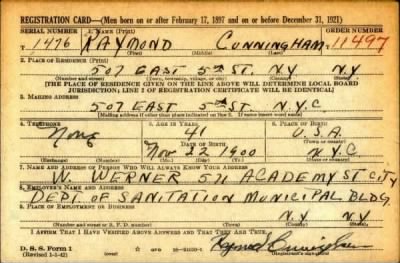 REGISTRATION CARD—(Men born on or after February 17, 1897 and on or before December 31, 1921)
SERIAL NUMBER 1. NAME (Print) ORDER NUMBER
1476 RAYMOND CUNNINGHAM 11497
(First) (Middle) (Last)
2. PLACE OF RESIDENCE (Print)
507 EAST 5th ST N.Y. N.Y
(Number and street) (Town, township, village, or city) (County) (State)
[THE PLACE OF RESIDENCE GIVEN ON THE LINE ABOVE WILL DETERMINE LOCAL BOARD
JURISDICTION; LINE 2 OF REGISTRATION CERTIFICATE WILL BE IDENTICAL]
3. MAILING ADDRESS
507 EAST 5th ST. N.Y.C
[Mailing address if other than place indicated on line 2. If same insert word same]
4. TELEPHONE 5. AGE IN YEARS 6. PLACE OF BIRTH
None 41 U.S.A.
DATE OF BIRTH
Nov 22 1900 N.Y.C.
(Exchange) (Number) (Mo.) (Day) (Yr.) (State or country)
7. NAME AND ADDRESS OF PERSON WHO WILL ALWAYS KNOW YOUR ADDRESS
W. WERNER 571 ACADEMY ST CITY
8. EMPLOYER'S NAME AND ADDRESS
DEPT OF SANITATION MUNICIPAL BLDG.
9. PLACE OF EMPLOYMENT OR BUSINESS
N.Y N.Y
(Number and street or R. F. D. number) (Town) (County) (State)
I AFFIRM THAT I HAVE VERIFIED ABOVE ANSWERS AND THAT THEY ARE TRUE.
D. S. S. Form 1
(Revised 1-1-42) Raymond Cunningham
(Registrant's signature)